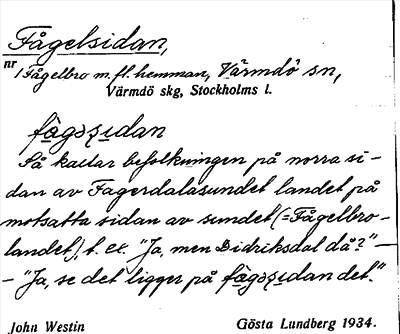 Fågelsidan,
nr 1 Fågelbro m. fl. hemman, Värmdö sn,
Värmdö skg, Stockholms l.
fågəsidan
Så kallar befolkningen på norra si-
dan av Fagerdalasundet landet på
motsatta sidan av sundet (=Fågelbro-
landet), t. ex. "Ja, men Didriksdal då?" —
— "Ja, se det ligger på fågəsidan det."
John Westin
Gösta Lundberg 1934.